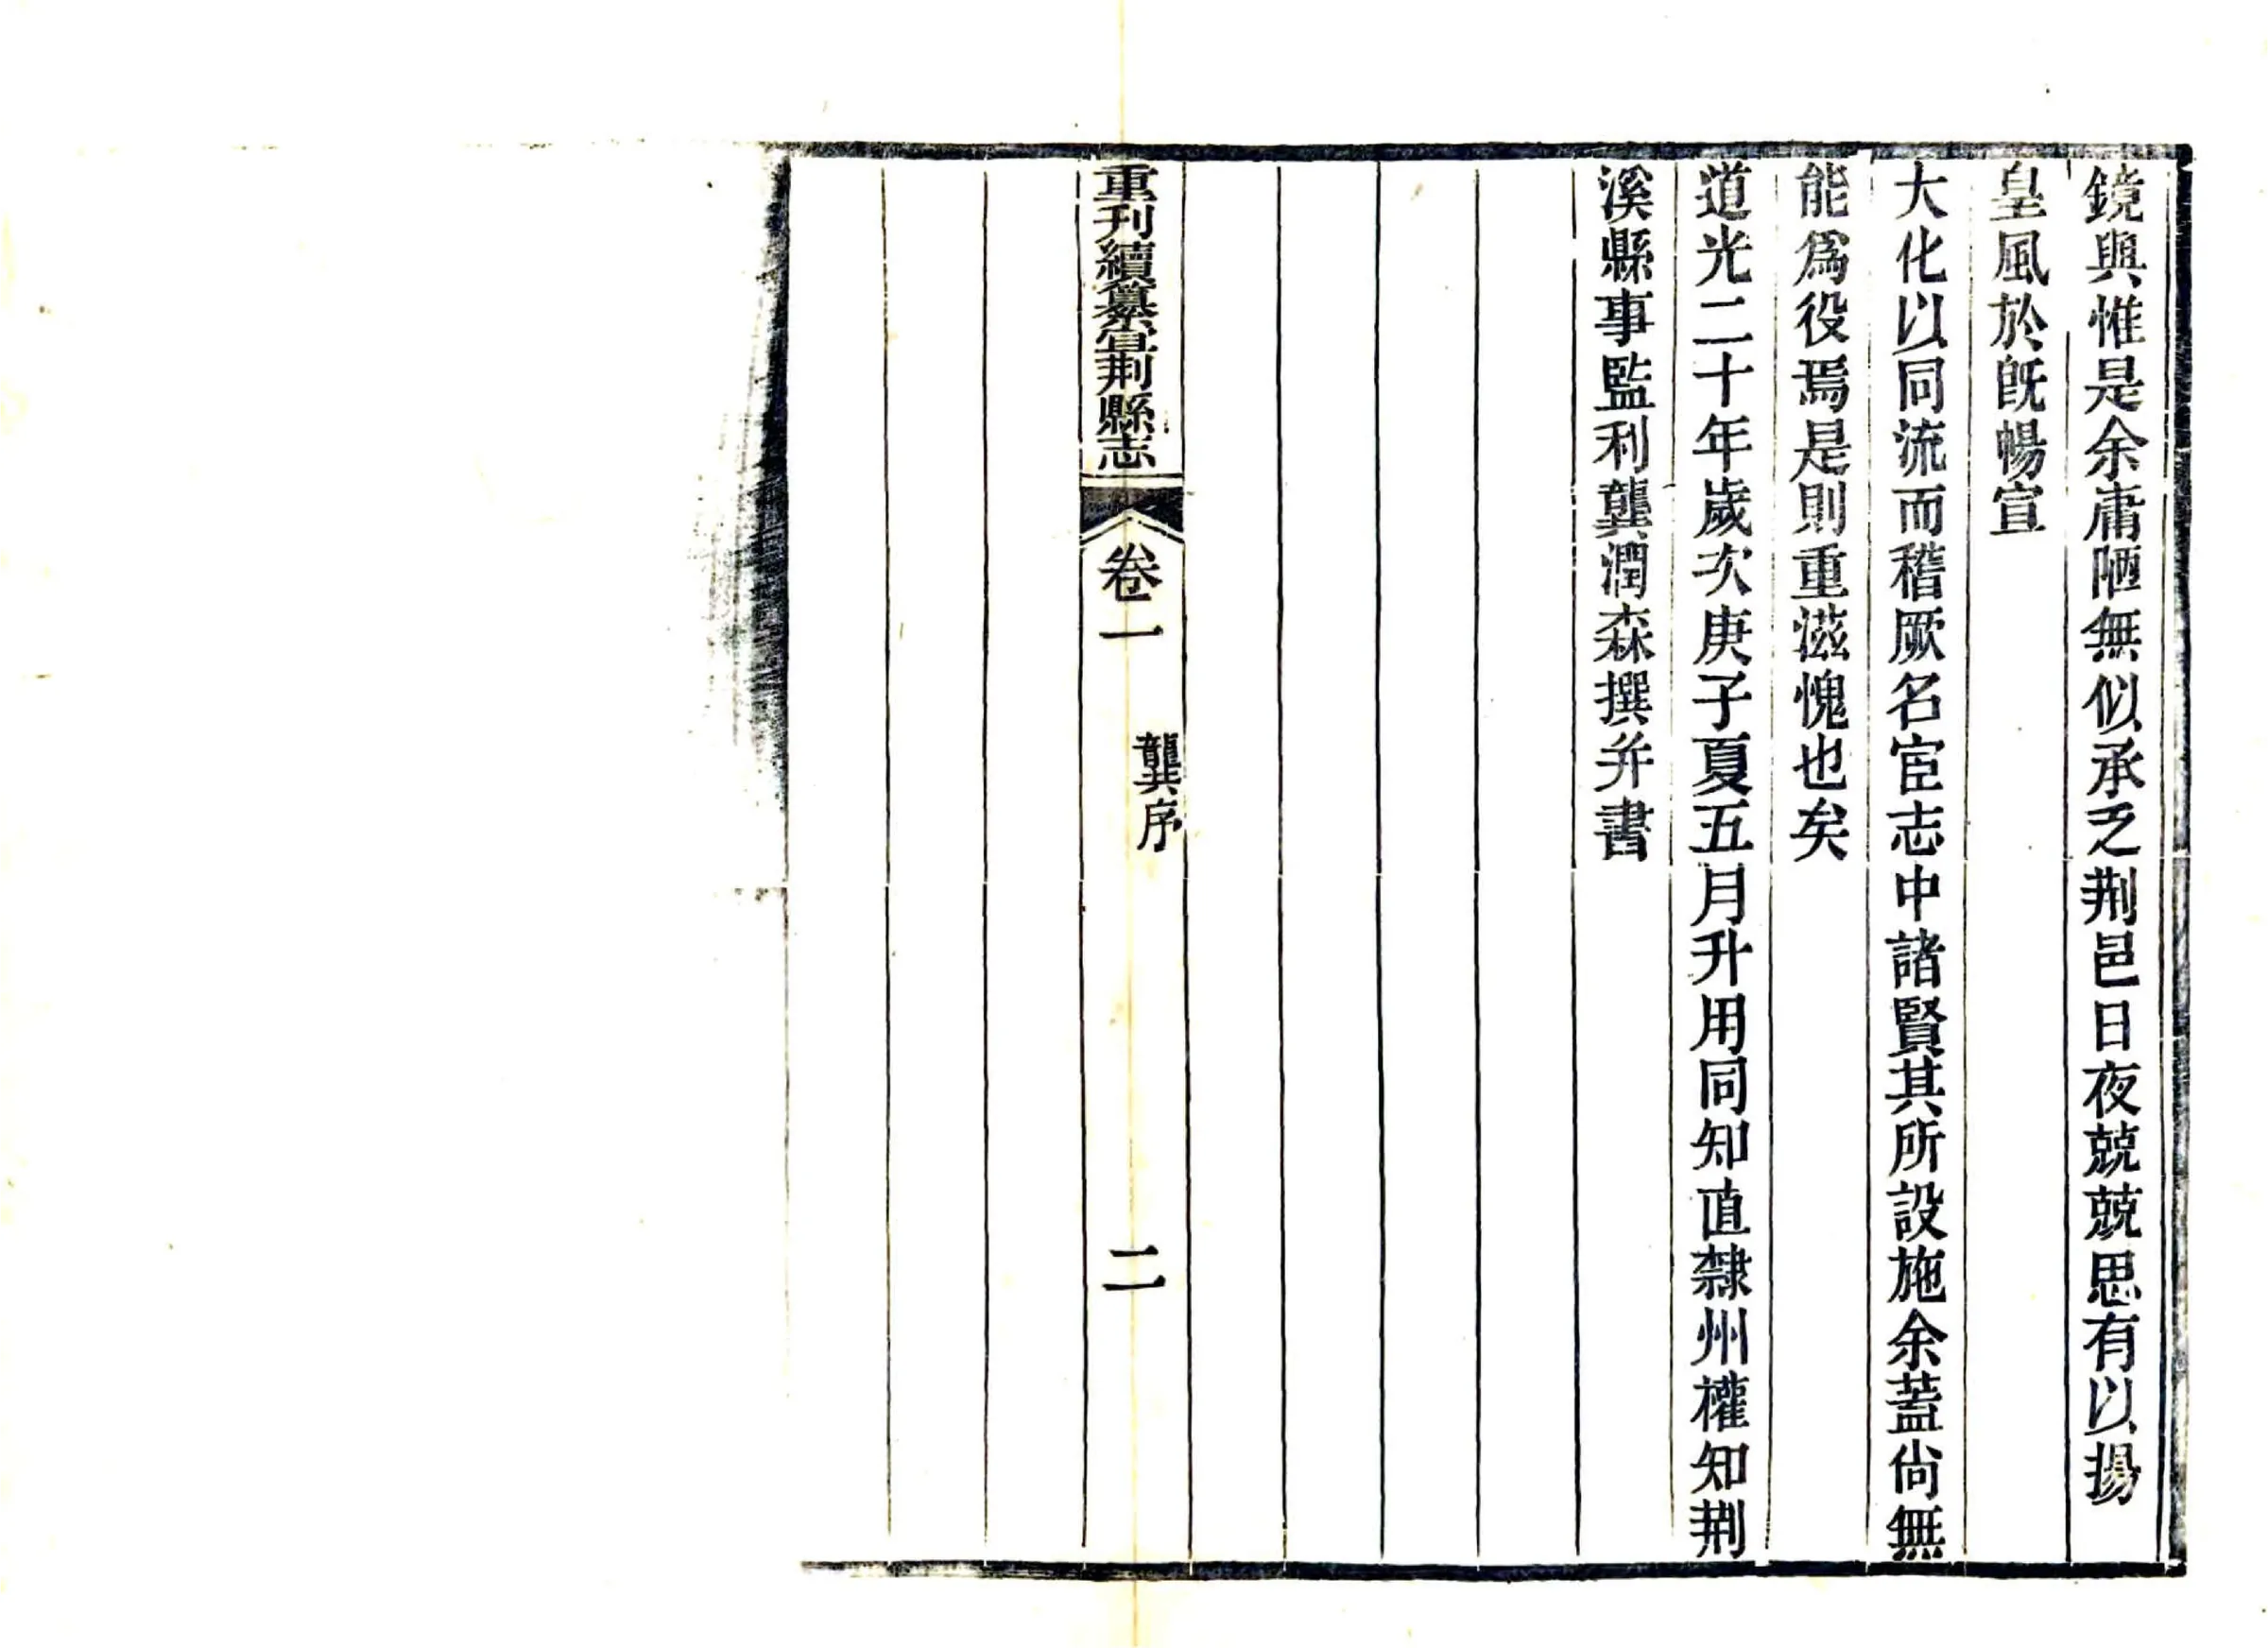 鏡與惟是余庸陋無似承乏荆邑日夜兢兢思有以揚
皇風於旣暢宣
大化以同流而稽厥名宦志中諸賢其所設施余蓋尙無
能爲役焉是則重滋愧也矣
道光二十年歲次庚子夏五月升用同知直隸州權知荆
溪縣事監利龔潤森撰并書
重刊續纂宜荆縣志
卷一
龔序
二